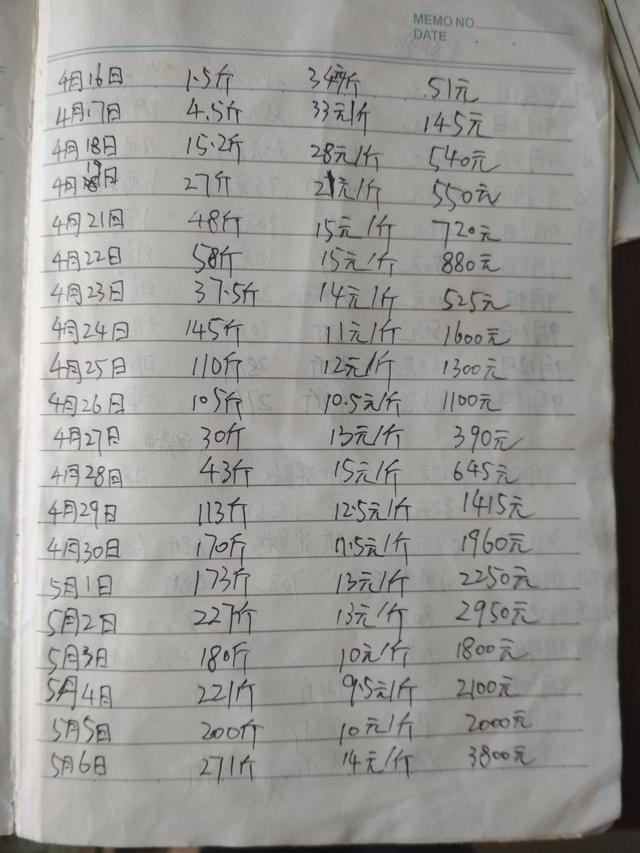 MEMO NO.
DATE
4月16日 1.5斤 34元/斤 51元
4月17日 4.5斤 33元/斤 145元
4月18日 15.2斤 28元/斤 540元
4月19日 27斤 21元/斤 550元
4月21日 48斤 15元/斤 720元
4月22日 58斤 15元/斤 880元
4月23日 37.5斤 14元/斤 525元
4月24日 145斤 11元/斤 1600元
4月25日 110斤 12元/斤 1300元
4月26日 105斤 10.5元/斤 1100元
4月27日 30斤 13元/斤 390元
4月28日 43斤 15元/斤 645元
4月29日 113斤 12.5元/斤 1415元
4月30日 170斤 11.5元/斤 1960元
5月1日 173斤 13元/斤 2250元
5月2日 227斤 13元/斤 2950元
5月3日 180斤 10元/斤 1800元
5月4日 221斤 9.5元/斤 2100元
5月5日 200斤 10元/斤 2000元
5月6日 271斤 14元/斤 3800元